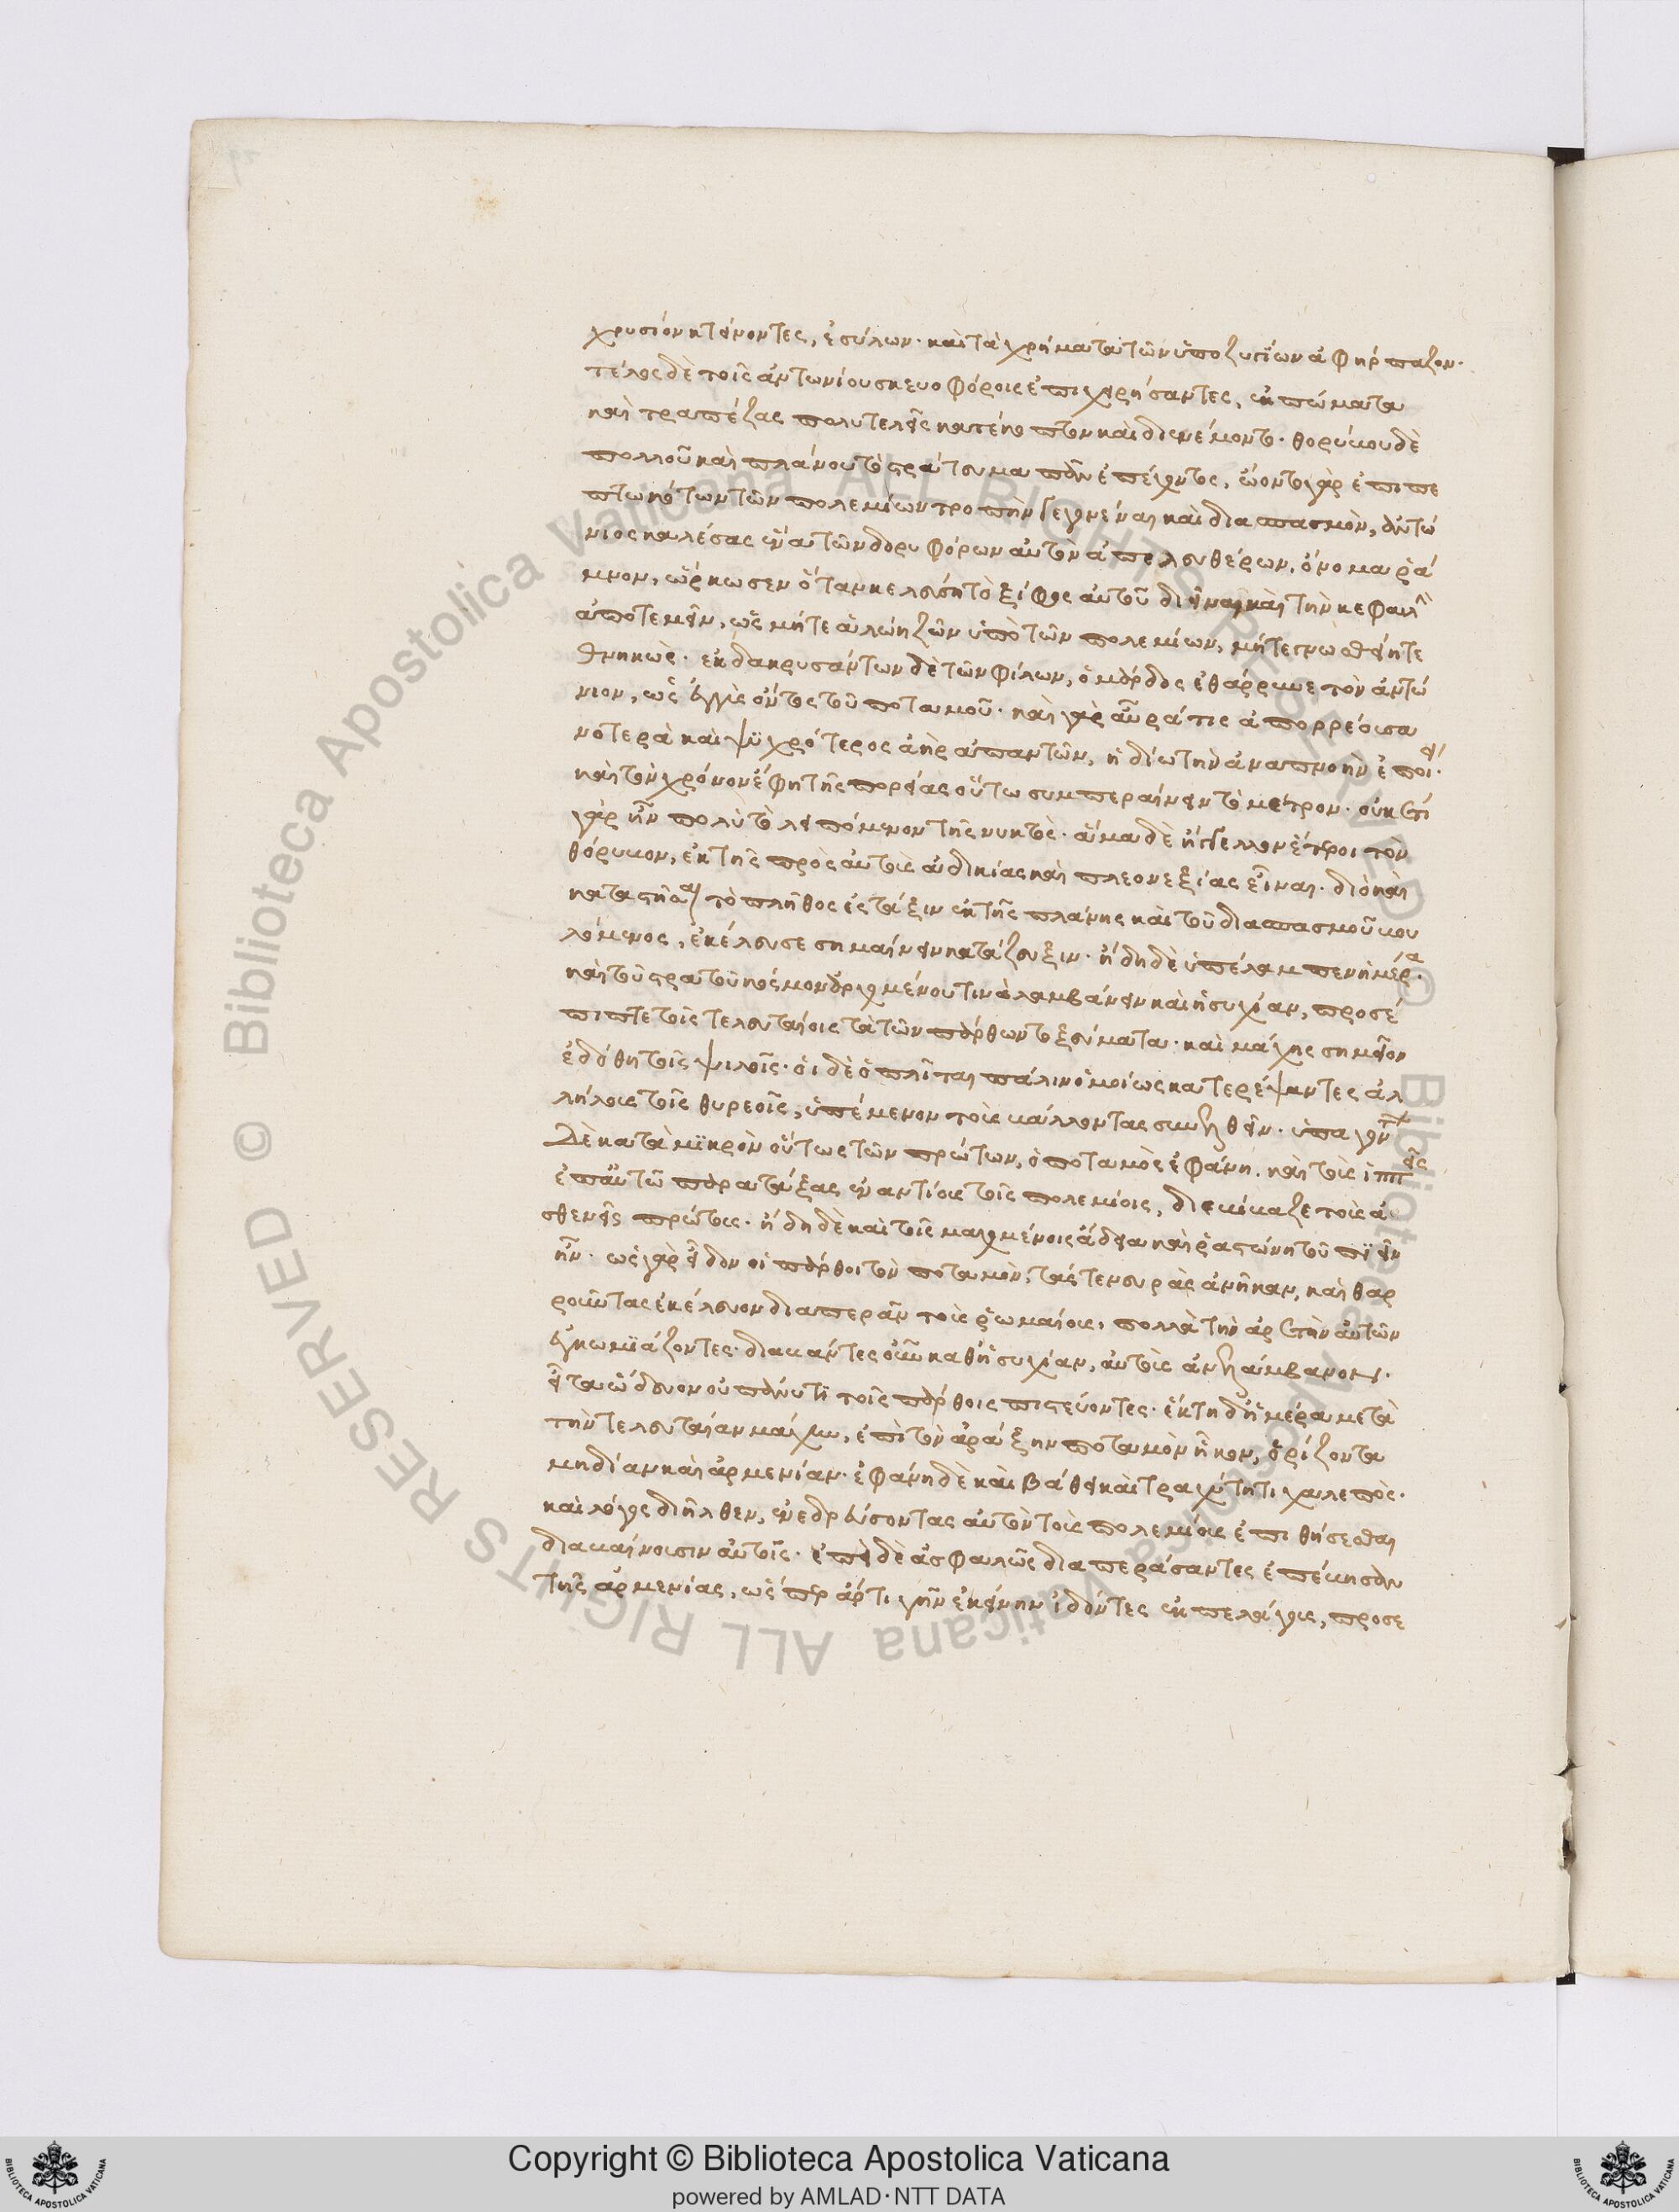 χρυσίον κτείνοντες, ἐσύλων· καὶ τὰ χρήματα τῶν ὑποζυγίων ἀφήρπαζον·
τέλος δὲ τοῖς ἀντωνίου σκευοφόροις ἐπιχειρήσαντες, ἐκπώματα
καὶ τραπέζας πολυτελεῖς κατέκοπτον καὶ διενέμοντο· θορύβου δὲ
πολλοῦ καὶ πλάνου τὸ στράτευμα πᾶν ἐπέχοντος, ᾤοντο γὰρ ἐπιπε
πτωκότων τῶν πολεμίων τροπὴν γεγονέναι καὶ διασπασμὸν, ἀντώ
νιος καλέσας ἕνα τῶν δορυφόρων αὐτὸν ἀπελευθέρων, ὄνομα ῥά
μνον, ὥρκωσεν ὅταν κελεύσῃ τὸ ξίφος αὐτοῦ διεῖναι καὶ τὴν κεφαλὴν
ἀποτεμεῖν, ὡς μήτε ἁλώῃ ζῶν ὑπὸ τῶν πολεμίων, μήτε γνωσθείη τε
θνηκὼς· ἐκδακρυσάντων δὲ τῶν φίλων, ὁ μάρδος ἐθάρρυνε τὸν ἀντώ
νιον, ὡς ἐγγὺς ὄντος τοῦ ποταμοῦ· καὶ γὰρ αὔρα τις ἀπορρέουσα
νοτερὰ καὶ ψυχρότερος ἀὴρ ἀπαντῶν, ἡδίω τὴν ἀναπνοὴν ἐποίει·
καὶ τὸν χρόνον ἔφη τῆς πορείας οὕτω συμπεραίνειν τὸ μέτρον· οὐκέτι
γὰρ ἦν πολὺ τὸ λειπόμενον τῆς νυκτὸς· ἅμα δὲ ἤγγελλον ἕτεροι τὸν
θόρυβον, ἐκ τῆς πρὸς αὐτοὺς ἀδικίας καὶ πλεονεξίας εἶναι· διὸ καὶ
καταστῆσαι τὸ πλῆθος εἰς τάξιν ἐκ τῆς πλάνης καὶ τοῦ διασπασμοῦ βου
λόμενος, ἐκέλευσε σημαίνειν κατάζευξιν· ἤδη δὲ ὑπέλαμπεν ἡμέρα·
καὶ τοῦ στρατοῦ κόσμον ἀρχομένου τινὰ λαμβάνειν καὶ ἡσυχίαν, προσέ
πιπτε τοῖς τελευταίοις τὰ τῶν πάρθων τοξεύματα· καὶ μάχης σημεῖον
ἐδόθη τοῖς ψιλοῖς· οἱ δὲ ὁπλῖται πάλιν ὁμοίως κατερέψαντες ἀλ
λήλους τοῖς θυρεοῖς, ὑπέμενον τοὺς βάλλοντας συνελθεῖν· ὑπαγόντων
δὲ κατὰ μϊκρὸν οὕτως τῶν πρώτων, ὁ ποταμὸς ἐφάνη· καὶ τοὺς ἱππεῖς
ἐπ' αὐτῶ παρατάξας ἐναντίους τοῖς πολεμίοις, διεβίβαζε τοὺς ἀ
σθενεῖς πρώτους· ἤδη δὲ καὶ τοῖς μαχομένοις ἄδεια καὶ ῥαστώνη τοῦ πϊεῖν
ἦν· ὡς γὰρ εἶδον οἱ πάρθοι τὸν ποταμὸν, τάς τε νευρὰς ἀνῆκαν, καὶ θαρ
ροῦντας ἐκέλευον διαπερᾶν τοὺς ῥωμαίους, πολλὰ τὴν ἀρετὴν αὐτῶν
ἐγκωμϊάζοντες· διαβάντες οὖν καθ' ἡσυχίαν, αὑτοὺς ἀνελάμβανον·
εἶτα ὥδευον οὐ πάνυ τι τοῖς πάρθοις πιστεύοντες· ἕκτη δ' ἡμέρα μετὰ
τὴν τελευταίαν μάχην, ἐπὶ τὸν ἀράξην ποταμὸν ἧκον, ὁρίζοντα
μηδίαν καὶ ἀρμενίαν· ἐφάνη δὲ καὶ βάθει καὶ τραχύτητι χαλεπὸς·
καὶ λόγος διῆλθεν, ἐνεδρεύσοντας αὐτὸν τοὺς πολεμίους ἐπιθήσεσθαι
διαβαίνουσιν αὐτοῖς· ἐπεὶ δὲ ἀσφαλῶς διαπεράσαντες ἐπέβησαν
τῆς ἀρμενίας, ὥσπερ ἄρτι γῆν ἐκείνην ἰδόντες ἐκ πελάγους, προσε
Copyright © Biblioteca Apostolica Vaticana
powered by AMLAD·NTT DATA
© Biblioteca Apostolica Vaticana ALL RIGHTS RESERVED © Biblioteca Apostolica Vaticana ALL RIGHTS RESERVED